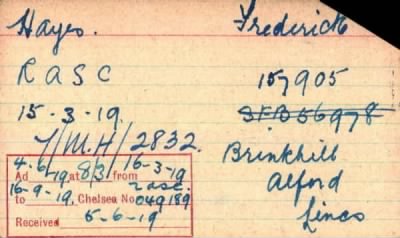 Hayes. Frederick
R A S C 157905
15-3-19. SFB56978
7/M.H/2832. Brinkhill
Alford
Lincs
4-6-19 16-3-19
Ad at 8/3 from
16-9-19. RASC.
to Chelsea No 049189
Received 5-6-19